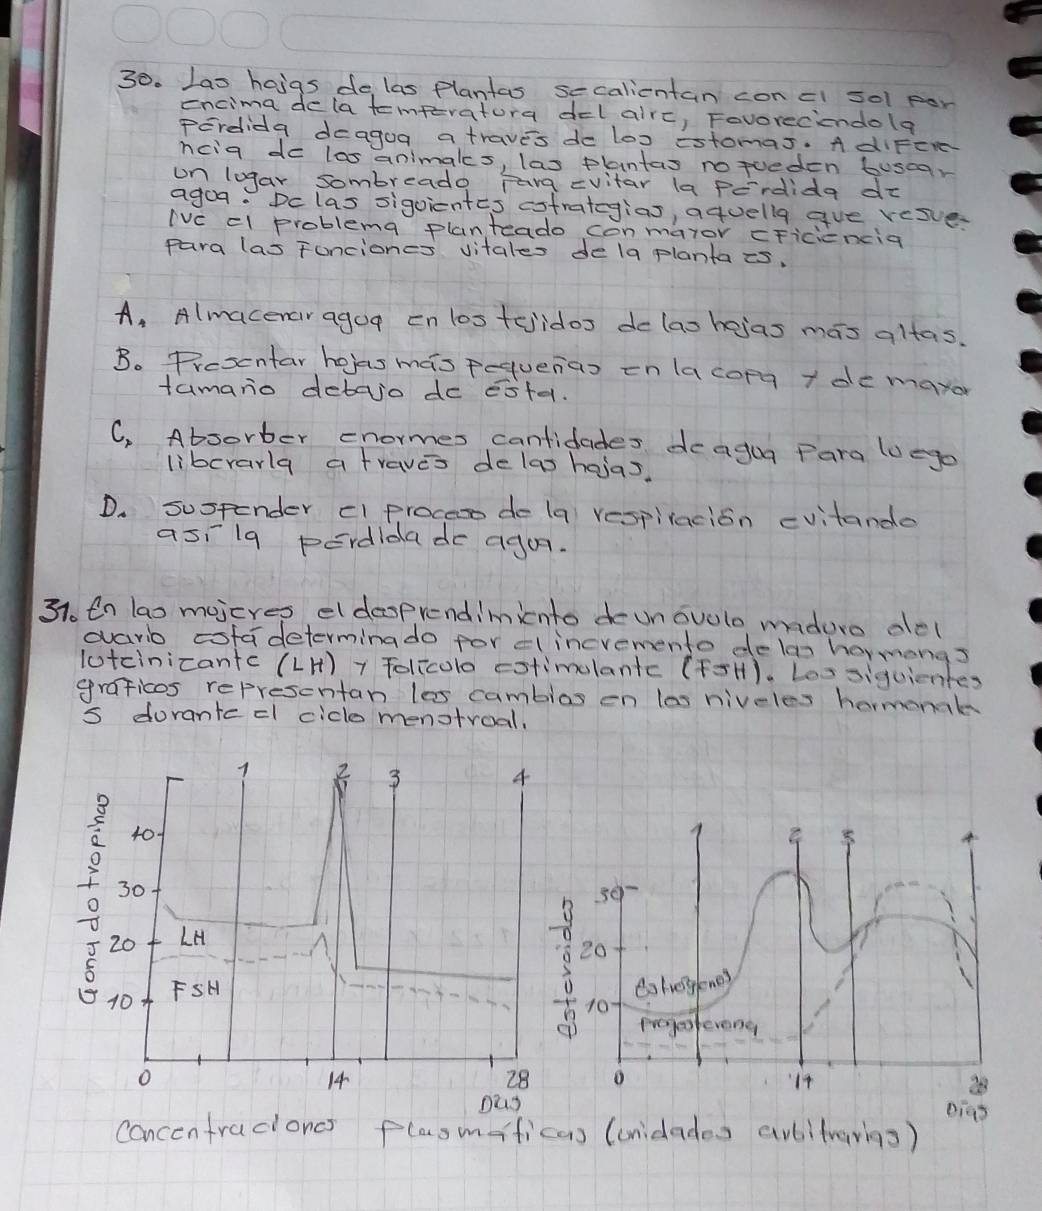 30. Las hojas de las plantas se calientan con el sol por
encima de la temperatura del aire, Favoreciendo la
pérdida de agua a través de los estomas. A difere
ncia de los animales, las plantas no pueden buscar
un lugar sombreado para evitar la pérdida de
agua. De las siguientes estrategias, aquella que resue-
lve el problema planteado con mayor eficiencia
para las Funciones vitales de la planta es.
A. Almacenar agua en los tejidos de las hojas más altas.
B. Presentar hojas más pequeñas en la copa y de mayor
tamaño debajo de ésta.
C. Absorber enormes cantidades de agua para luego
liberarla a través de las hojas.
D. suspender el proceso de la respiración evitando
así la pérdida de agua.
31. En las mujeres el desprendimiento de un óvulo maduro del
ovario está determinado por el incremento de las hormonas
luteinizante (LH) y Folículo estimulante (FSH). Los siguientes
gráficos representan los cambios en los niveles hormonale
s durante el ciclo menstrual.
1 2 3 4
Gonadotropinas
40
30
20
10
LH
FSH
0 14 28
Días
1 2 3 4
esteroides
30
20
10
estrógenos
Progesterona
0 14 28
Días
concentraciones plasmáticas (unidades arbitrarias)